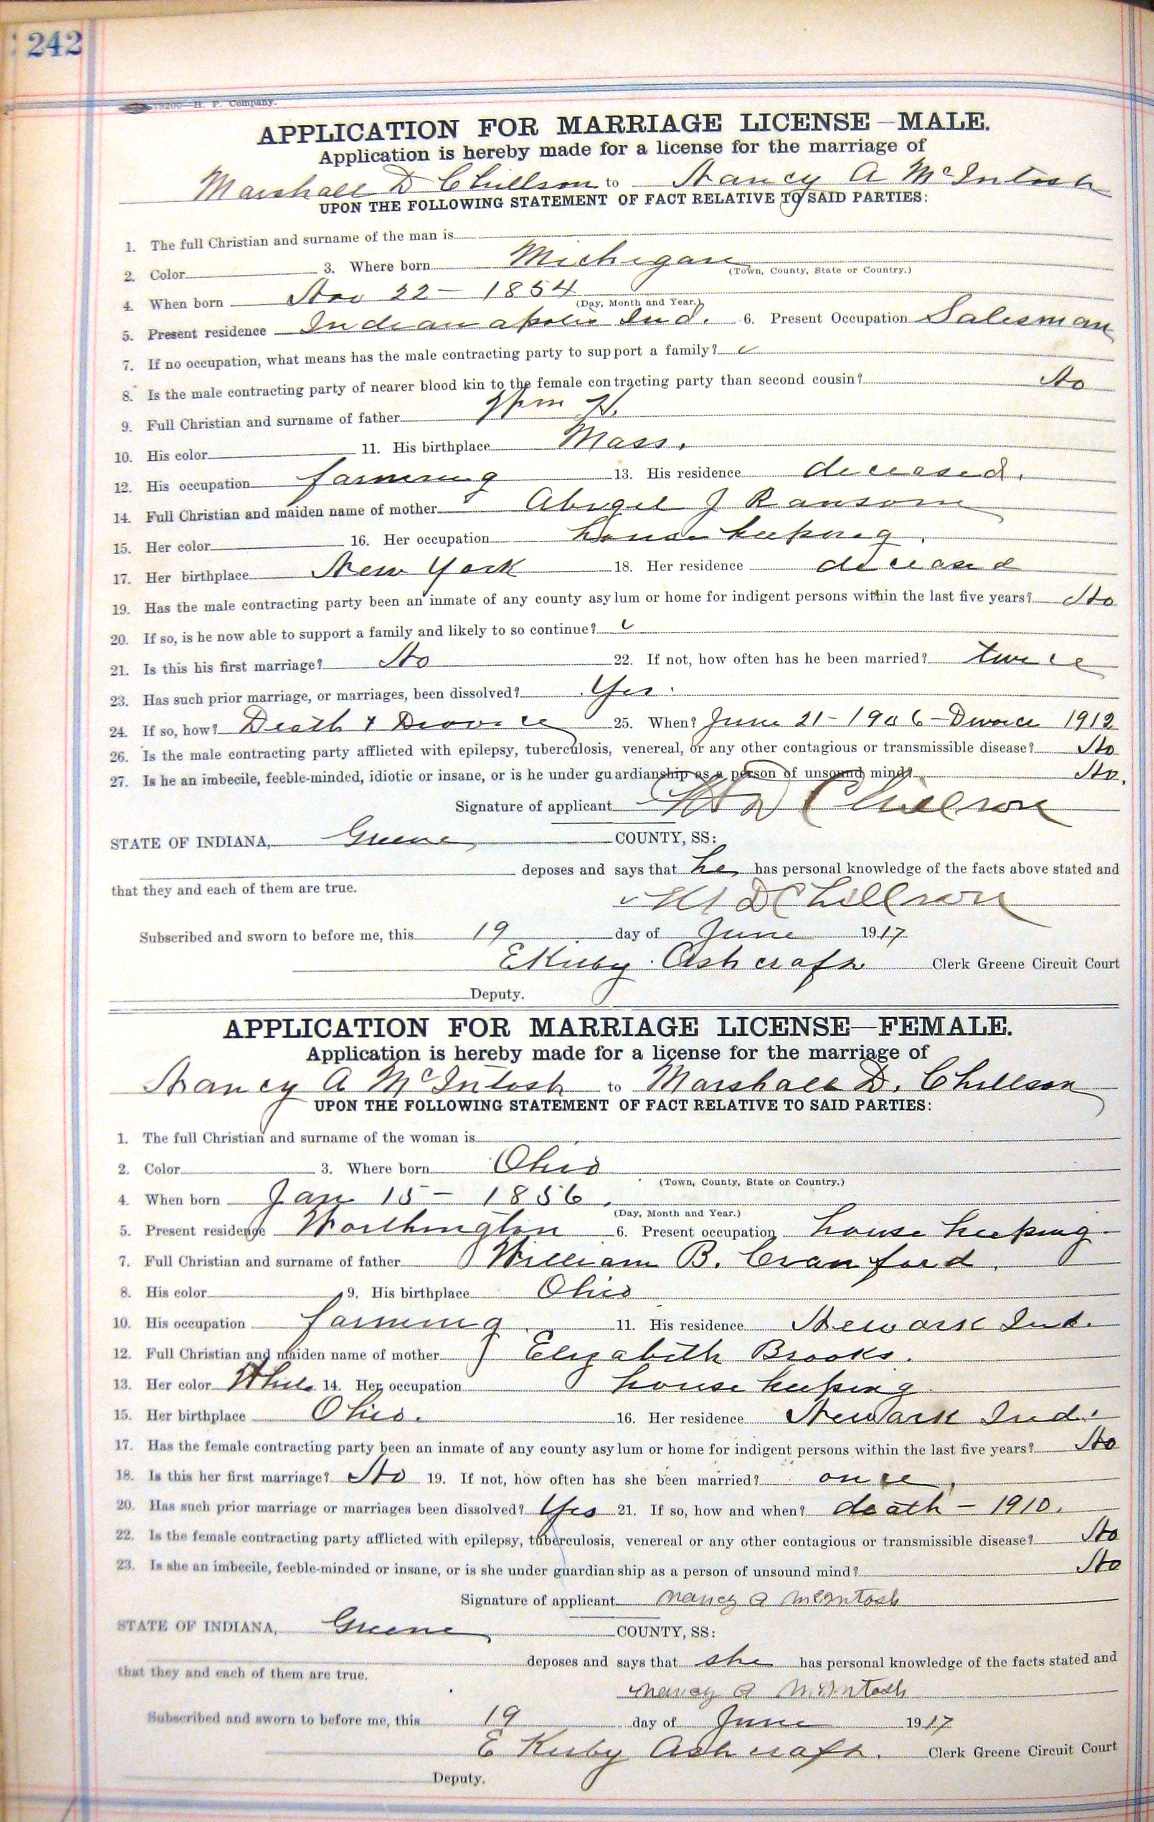 242
19200—H. P. Company.
APPLICATION FOR MARRIAGE LICENSE—MALE.
Application is hereby made for a license for the marriage of
Marshall D Chillson to Nancy A McIntosh
UPON THE FOLLOWING STATEMENT OF FACT RELATIVE TO SAID PARTIES:
1. The full Christian and surname of the man is
2. Color 3. Where born Michigan
(Town, County, State or Country.)
4. When born Nov 22 — 1854
(Day, Month and Year.)
5. Present residence Indianapolis Ind. 6. Present Occupation Salesman
7. If no occupation, what means has the male contracting party to support a family?
8. Is the male contracting party of nearer blood kin to the female contracting party than second cousin? No
9. Full Christian and surname of father H.
10. His color 11. His birthplace Mass.
12. His occupation farming 13. His residence deceased.
14. Full Christian and maiden name of mother Abigel J Ransom
15. Her color 16. Her occupation house keeping.
17. Her birthplace New York 18. Her residence deceased
19. Has the male contracting party been an inmate of any county asylum or home for indigent persons within the last five years? No
20. If so, is he now able to support a family and likely to so continue?
21. Is this his first marriage? No 22. If not, how often has he been married? twice
23. Has such prior marriage, or marriages, been dissolved? Yes.
24. If so, how? Death & Divorce 25. When? June 21-1906-Divorce 1912
26. Is the male contracting party afflicted with epilepsy, tuberculosis, venereal, or any other contagious or transmissible disease? No
27. Is he an imbecile, feeble-minded, idiotic or insane, or is he under guardianship as a person of unsound mind? No.
Signature of applicant M D Chillson
STATE OF INDIANA, Greene COUNTY, SS:
deposes and says that he has personal knowledge of the facts above stated and
that they and each of them are true.
M D Chillson
Subscribed and sworn to before me, this 19 day of June 1917
E Kirby Ashcraft Clerk Greene Circuit Court
Deputy.
APPLICATION FOR MARRIAGE LICENSE—FEMALE.
Application is hereby made for a license for the marriage of
Nancy A McIntosh to Marshall D. Chillson
UPON THE FOLLOWING STATEMENT OF FACT RELATIVE TO SAID PARTIES:
1. The full Christian and surname of the woman is
2. Color 3. Where born Ohio
(Town, County, State or Country.)
4. When born Jan 15 — 1856.
(Day, Month and Year.)
5. Present residence Worthington 6. Present occupation house keeping.
7. Full Christian and surname of father William B. Crawford.
8. His color 9. His birthplace Ohio
10. His occupation farming 11. His residence Newark Ind.
12. Full Christian and maiden name of mother Elizabeth Brooks.
13. Her color White 14. Her occupation house keeping.
15. Her birthplace Ohio. 16. Her residence Newark Ind.
17. Has the female contracting party been an inmate of any county asylum or home for indigent persons within the last five years? No
18. Is this her first marriage? No 19. If not, how often has she been married? once.
20. Has such prior marriage or marriages been dissolved? Yes 21. If so, how and when? death — 1910.
22. Is the female contracting party afflicted with epilepsy, tuberculosis, venereal or any other contagious or transmissible disease? No
23. Is she an imbecile, feeble-minded or insane, or is she under guardianship as a person of unsound mind? No
Signature of applicant nancy a McIntosh
STATE OF INDIANA, Greene COUNTY, SS:
deposes and says that she has personal knowledge of the facts stated and
that they and each of them are true.
nancy a McIntosh
Subscribed and sworn to before me, this 19 day of June 1917
E Kirby Ashcraft. Clerk Greene Circuit Court
Deputy.